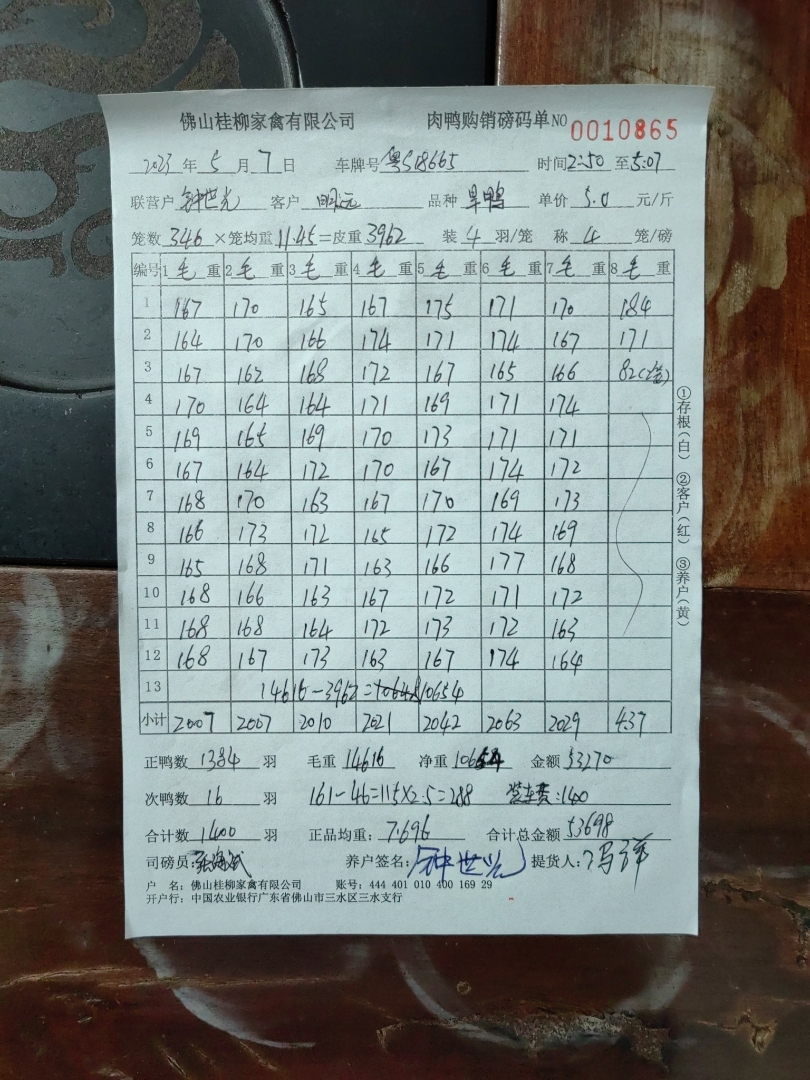 佛山桂柳家禽有限公司 肉鸭购销磅码单 NO 0010865
2023 年 5 月 7 日 车牌号 粤S18665 时间 2:50 至 5:07
联营户 钟世光 客户 明远 品种 旱鸭 单价 5.0 元/斤
笼数 346 ×笼均重 11.45 =皮重 3962 装 4 羽/笼 称 4 笼/磅
编号 1 毛 重 2 毛 重 3 毛 重 4 毛 重 5 毛 重 6 毛 重 7 毛 重 8 毛 重
1 167 170 165 167 175 171 170 184
2 164 170 166 174 171 174 167 171
3 167 162 168 172 167 165 166 82(2笼)
4 170 164 164 171 169 171 174
5 169 165 169 170 173 171 171
6 167 164 172 170 167 174 172
7 168 170 163 167 170 169 173
8 166 173 172 165 172 174 169
9 165 168 171 163 166 177 168
10 168 166 163 167 172 171 172
11 168 168 164 172 173 172 163
12 168 167 173 163 167 174 164
13 14616-3962= 10654
小计 2007 2007 2010 2021 2042 2063 2029 437
正鸭数 1384 羽 毛重 14616 净重 10654 金额 53270
次鸭数 16 羽 161-46=115×2.5=288 装车费:140
合计数 1400 羽 正品均重: 7.696 合计总金额 53698
司磅员: 养户签名: 钟世光 提货人: 冯祥
户 名: 佛山桂柳家禽有限公司 账号: 444 401 010 400 169 29
开户行: 中国农业银行广东省佛山市三水区三水支行
①存根(白) ②客户(红) ③养户(黄)